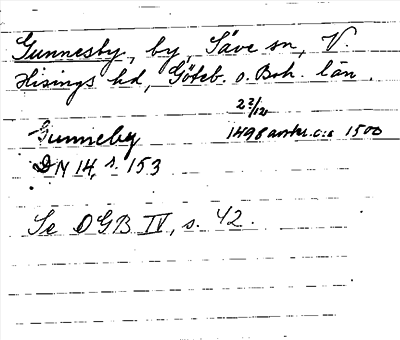 Gunnesby, by, Säve sn, V.
Hisings hd, Göteb. o. Boh. län.
22/12
Gunneby 1498 avskr. c:a 1500
DN 14, s. 153
Se OGB IV, s. 42.